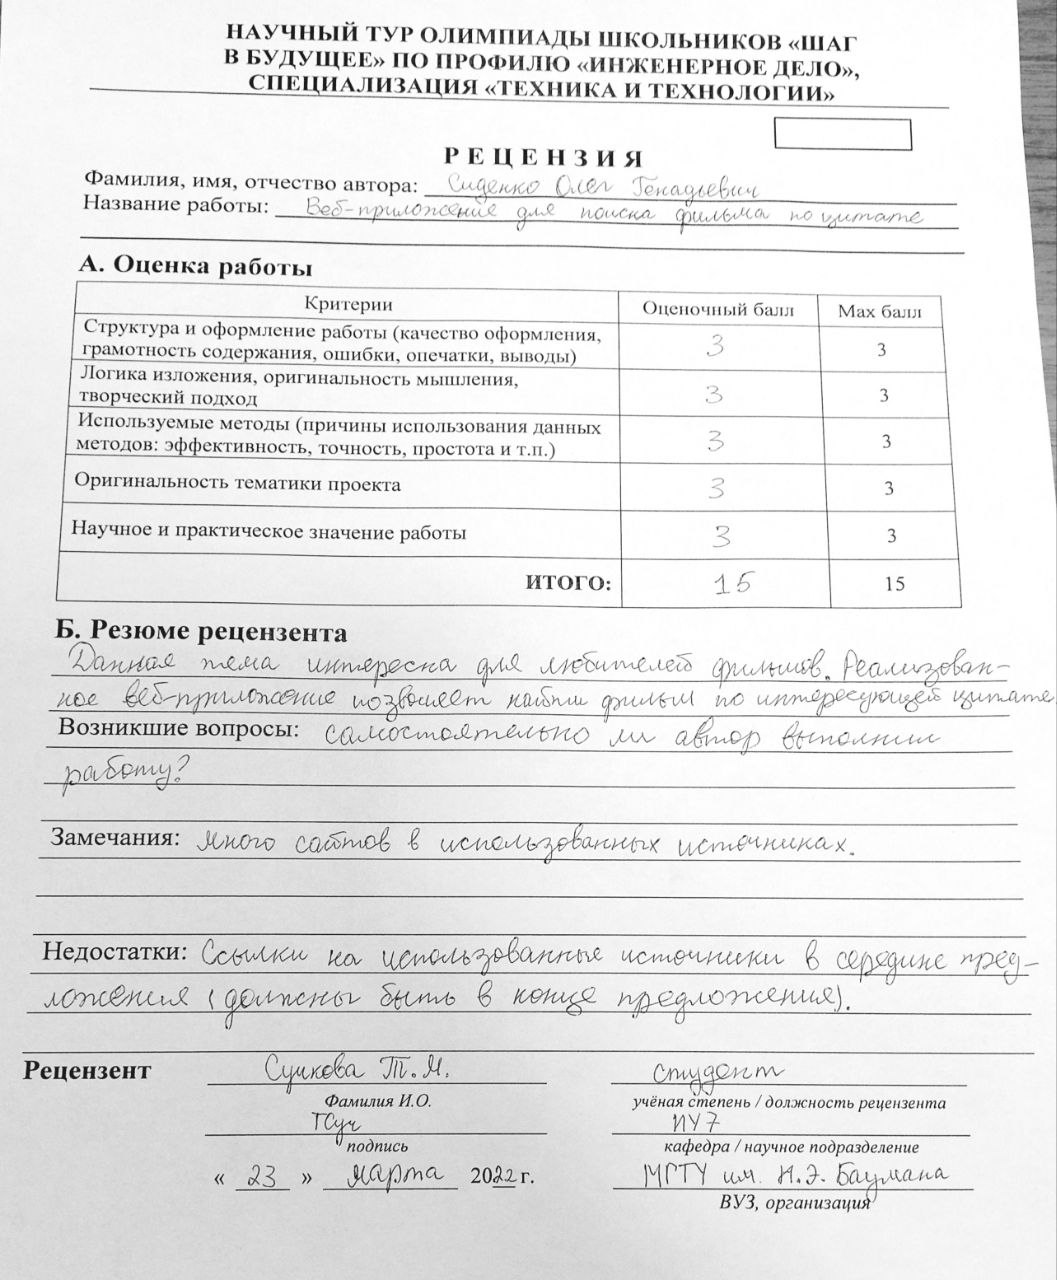 НАУЧНЫЙ ТУР ОЛИМПИАДЫ ШКОЛЬНИКОВ «ШАГ
В БУДУЩЕЕ» ПО ПРОФИЛЮ «ИНЖЕНЕРНОЕ ДЕЛО»,
СПЕЦИАЛИЗАЦИЯ «ТЕХНИКА И ТЕХНОЛОГИИ»
РЕЦЕНЗИЯ
Фамилия, имя, отчество автора: Сиденко Олег Генадьевич
Название работы: Веб-приложение для поиска фильма по цитате
А. Оценка работы
Критерии Оценочный балл Мах балл
Структура и оформление работы (качество оформления,
грамотность содержания, ошибки, опечатки, выводы) 3 3
Логика изложения, оригинальность мышления,
творческий подход 3 3
Используемые методы (причины использования данных
методов: эффективность, точность, простота и т.п.) 3 3
Оригинальность тематики проекта 3 3
Научное и практическое значение работы 3 3
ИТОГО: 15 15
Б. Резюме рецензента
Данная тема интересна для любителей фильмов. Реализован-
ное веб-приложение позволяет найти фильм по интересующей цитате.
Возникшие вопросы: самостоятельно ли автор выполнил
работу?
Замечания: много сайтов в использованных источниках.
Недостатки: Ссылки на использованные источники в середине пред-
ложения (должны быть в конце предложения).
Рецензент Сучкова Т.М. студент
Фамилия И.О. учёная степень / должность рецензента
ТСуч ИУ7
подпись кафедра / научное подразделение
« 23 » марта 2022 г. МГТУ им. Н.Э. Баумана
ВУЗ, организация